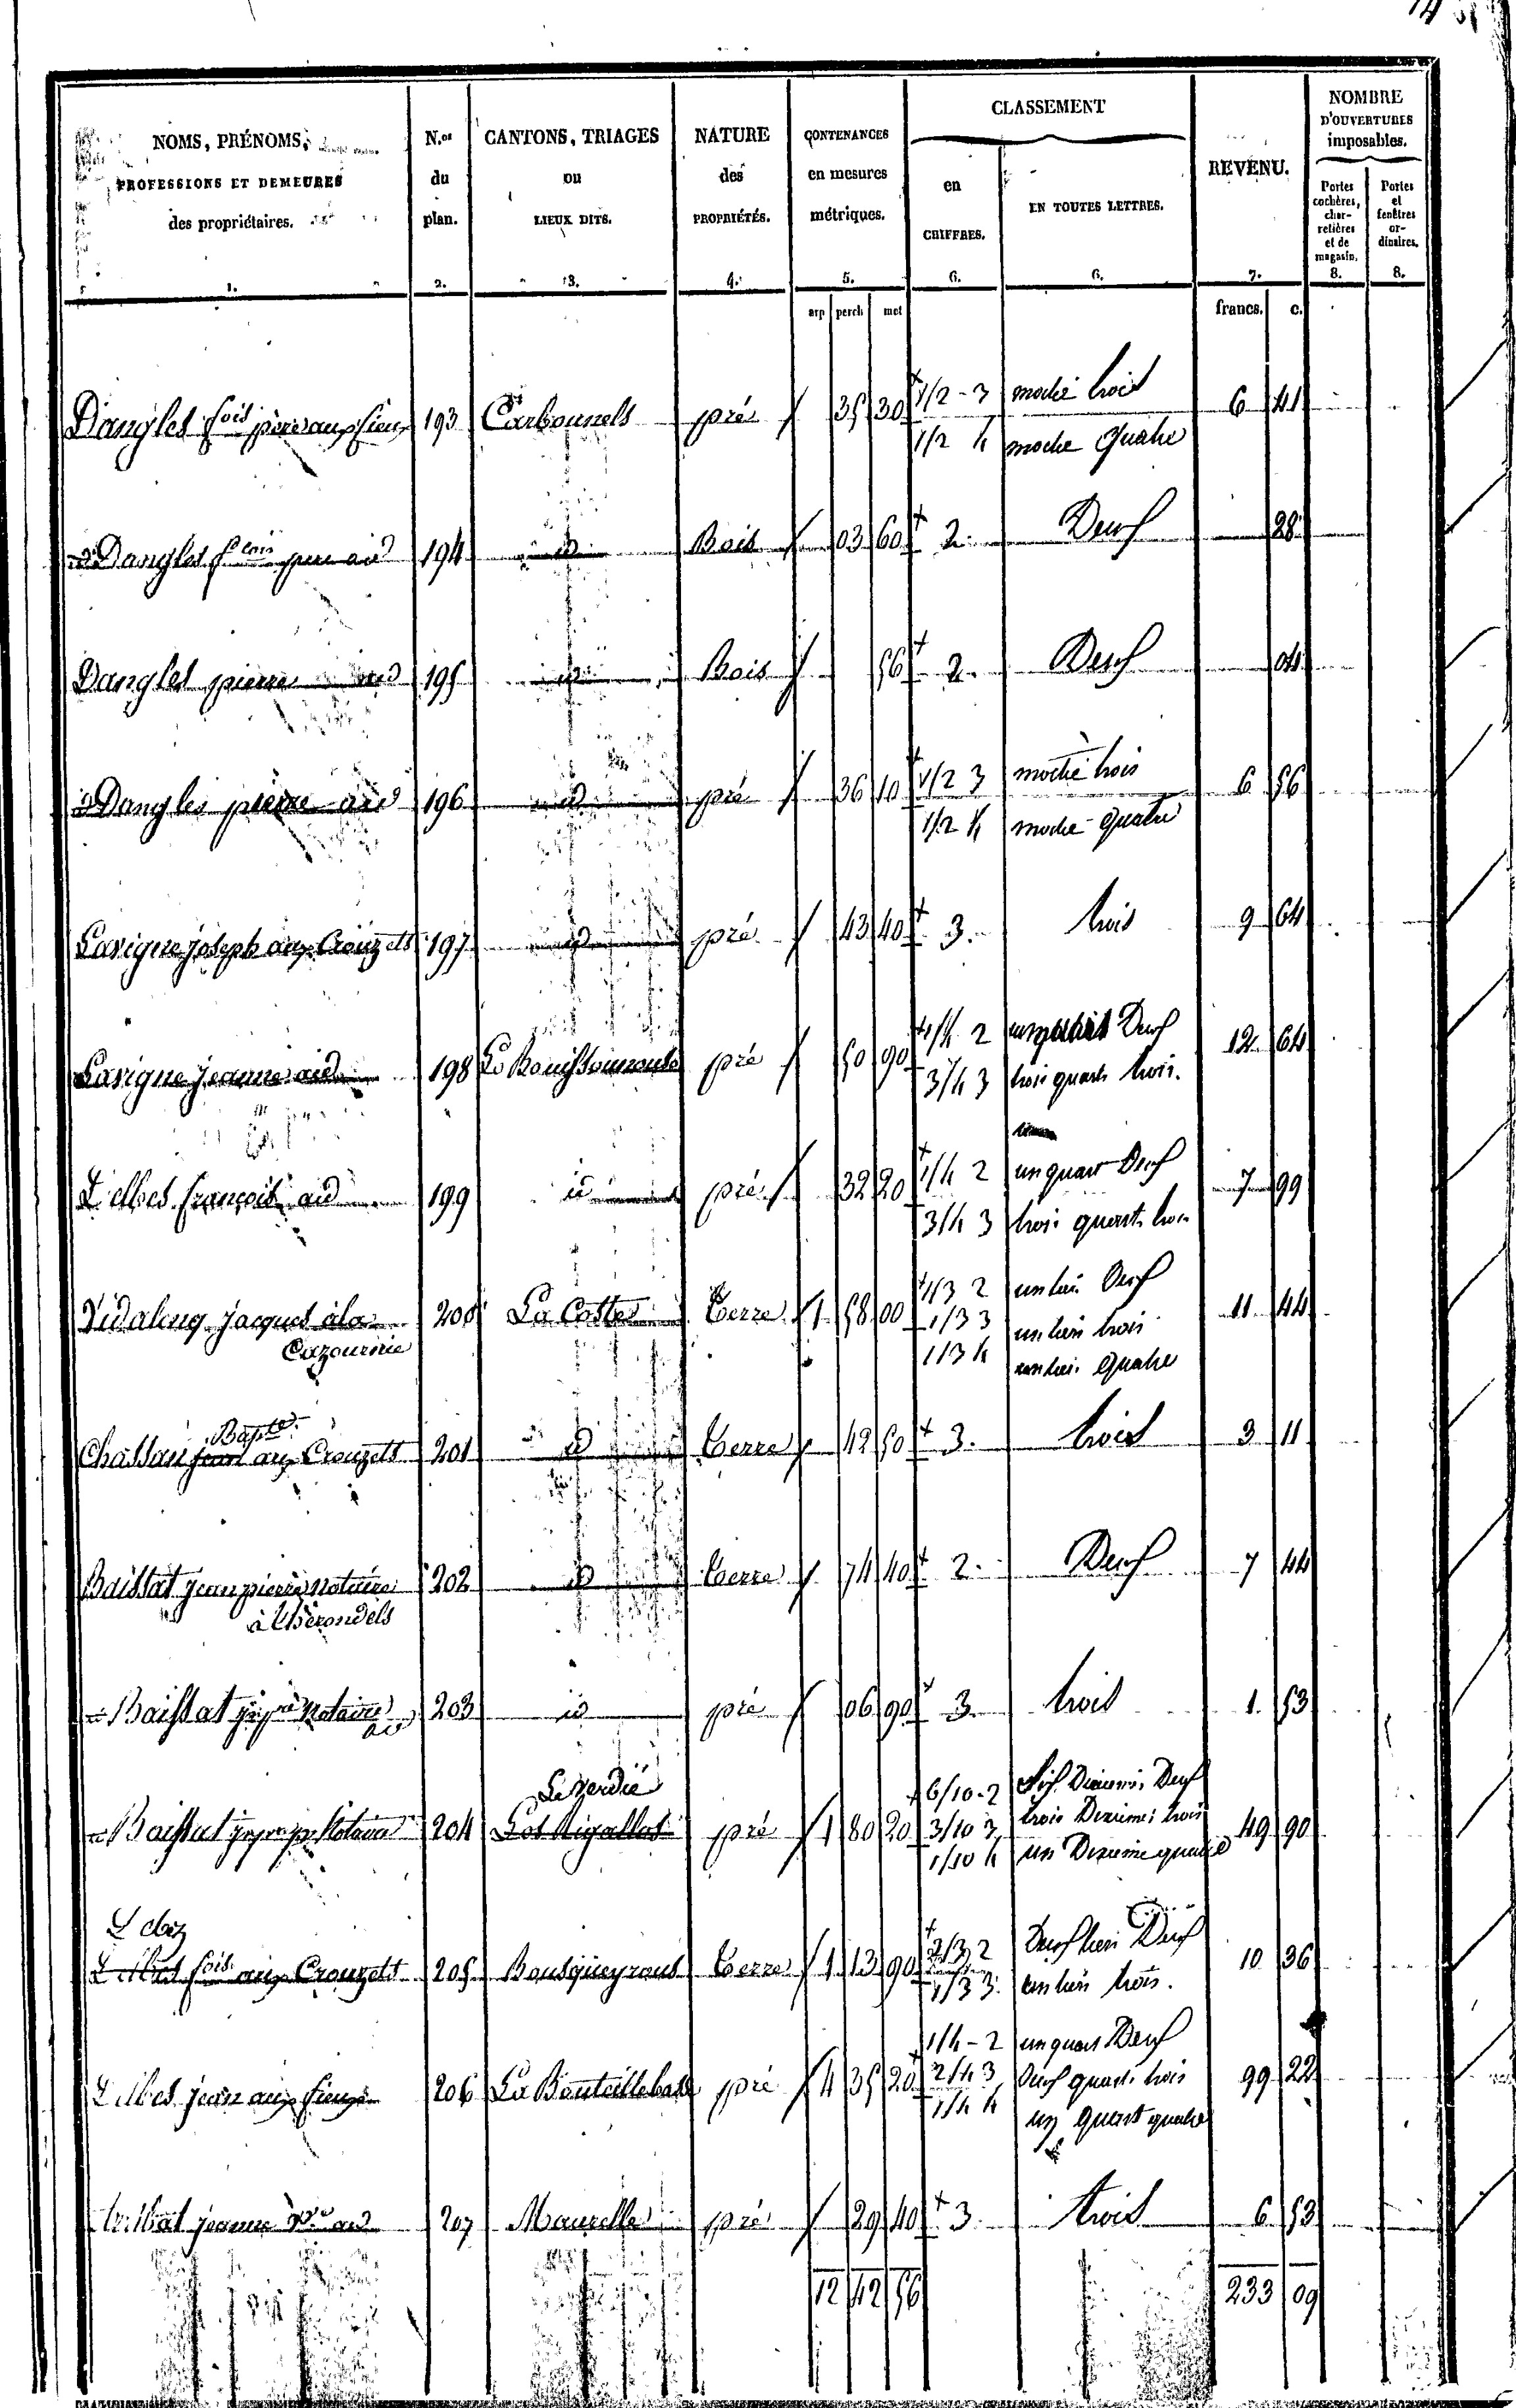 NOMS, PRÉNOMS,
PROFESSIONS ET DEMEURES
des propriétaires.
1.
N.os
du
plan.
2.
CANTONS, TRIAGES
ou
LIEUX DITS.
3.
NATURE
des
PROPRIÉTÉS.
4.
CONTENANCES
en mesures
métriques.
5.
arp perch met
CLASSEMENT
en
CHIFFRES.
6.
EN TOUTES LETTRES.
6.
REVENU.
7.
francs. c.
NOMBRE
D'OUVERTURES
imposables.
Portes
cochères,
char-
retières
et de
magasin.
8.
Portes
et
fenêtres
or-
dinaires.
8.
Dangles fois père aux fieux 193 Carbonnels pré 35 30 1/2 - 3 moitié trois 6 41
1/2 4 moitié quatre
Dangles père aud 194 id Bois 03 60 2. Deux 28
Dangles pierre aud 195 id Bois 56 2. Deux 04
Dangles pierre aud 196 id pré 36 10 1/2 3 moitié trois 6 56
1/2 4 moitié quatre
Lavigne joseph aux Crouzets 197 id pré 43 40 3. trois 9 64
Lavigne jeanne aud 198 pré 50 90 1/4 2 un quart Deux 12 64
3/4 3 trois quarts trois.
Delbes françois aud 199 id pré 32 20 1/4 2 un quart Deux 7 99
3/4 3 trois quarts trois
Vidaleng jacques à la 200 La Coste terre 1 58 00 1/3 2 un tiers Deux 11 44
Cazournie 1/3 3 un tiers trois
1/3 4 un tiers quatre
Bapte
Chassan jean aux Crouzets 201 id terre 42 50 3. trois 3 11
Baissat jean pierre notaire 202 id terre 74 40 2. Deux 7 44
à thérondels
Baissat notaire 203 id pré 06 90 3. trois 1 53
aud
Le Verdié 6/10 - 2 Six Dixiemes Deux
Baissat notaire 204 Los Rigallos pré 1 80 20 3/10 3 trois Dixiemes trois 49 90
1/10 4 un Dixieme quatre
Delbes fois aux Crouzets 205 Bousqueyrous terre 1 13 90 2/3 2 Deux tiers Deux 10 36
1/3 3. un tiers trois.
1/4 - 2 un quart Deux
Delbes jean aux fieux 206 La Bouteille basse pré 4 35 20 2/4 3 Deux quarts trois 99 22
1/4 4 un quart quatre
jeanne aud 207 Maurelle pré 29 40 3. trois 6 53
12 42 56 233 09